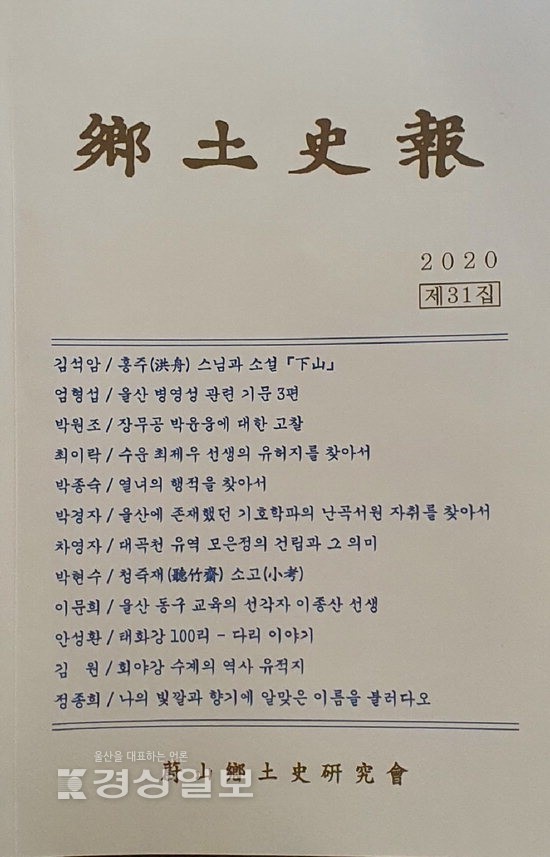 鄕土史報
2020
제31집
김석암 / 홍주(洪舟) 스님과 소설 『下山』
엄형섭 / 울산 병영성 관련 기문 3편
박원조 / 장무공 박윤웅에 대한 고찰
최이락 / 수운 최제우 선생의 유허지를 찾아서
박종숙 / 열녀의 행적을 찾아서
박경자 / 울산에 존재했던 기호학파의 난곡서원 자취를 찾아서
차영자 / 대곡천 유역 모은정의 건립과 그 의미
박현수 / 청죽재(聽竹齋) 소고(小考)
이문희 / 울산 동구 교육의 선각자 이종산 선생
안성환 / 태화강 100리 - 다리 이야기
김 원 / 회야강 수계의 역사 유적지
정종희 / 나의 빛깔과 향기에 알맞은 이름을 불러다오
울산을 대표하는 언론
경상일보
蔚山鄕土史硏究會